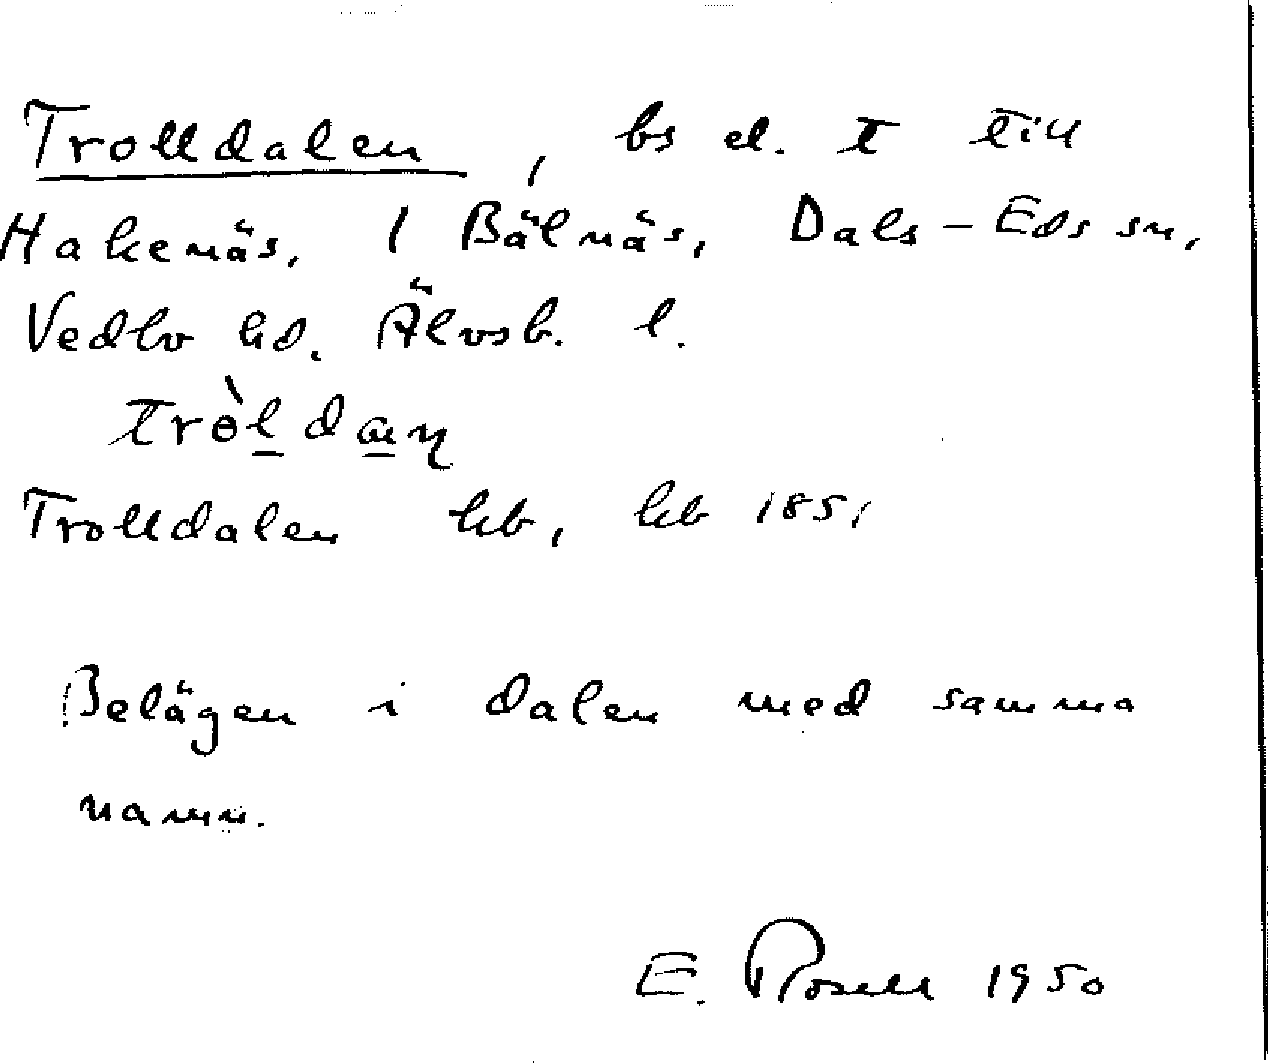 Trolldalen, bs el. t till
Hakenäs, 1 Bälnäs, Dals-Eds sn,
Vedbo hd. Älvsb. l.
Trolldalen hb, hb 1851
Belägen i dalen med samma
namn.
E. Rosell 1950